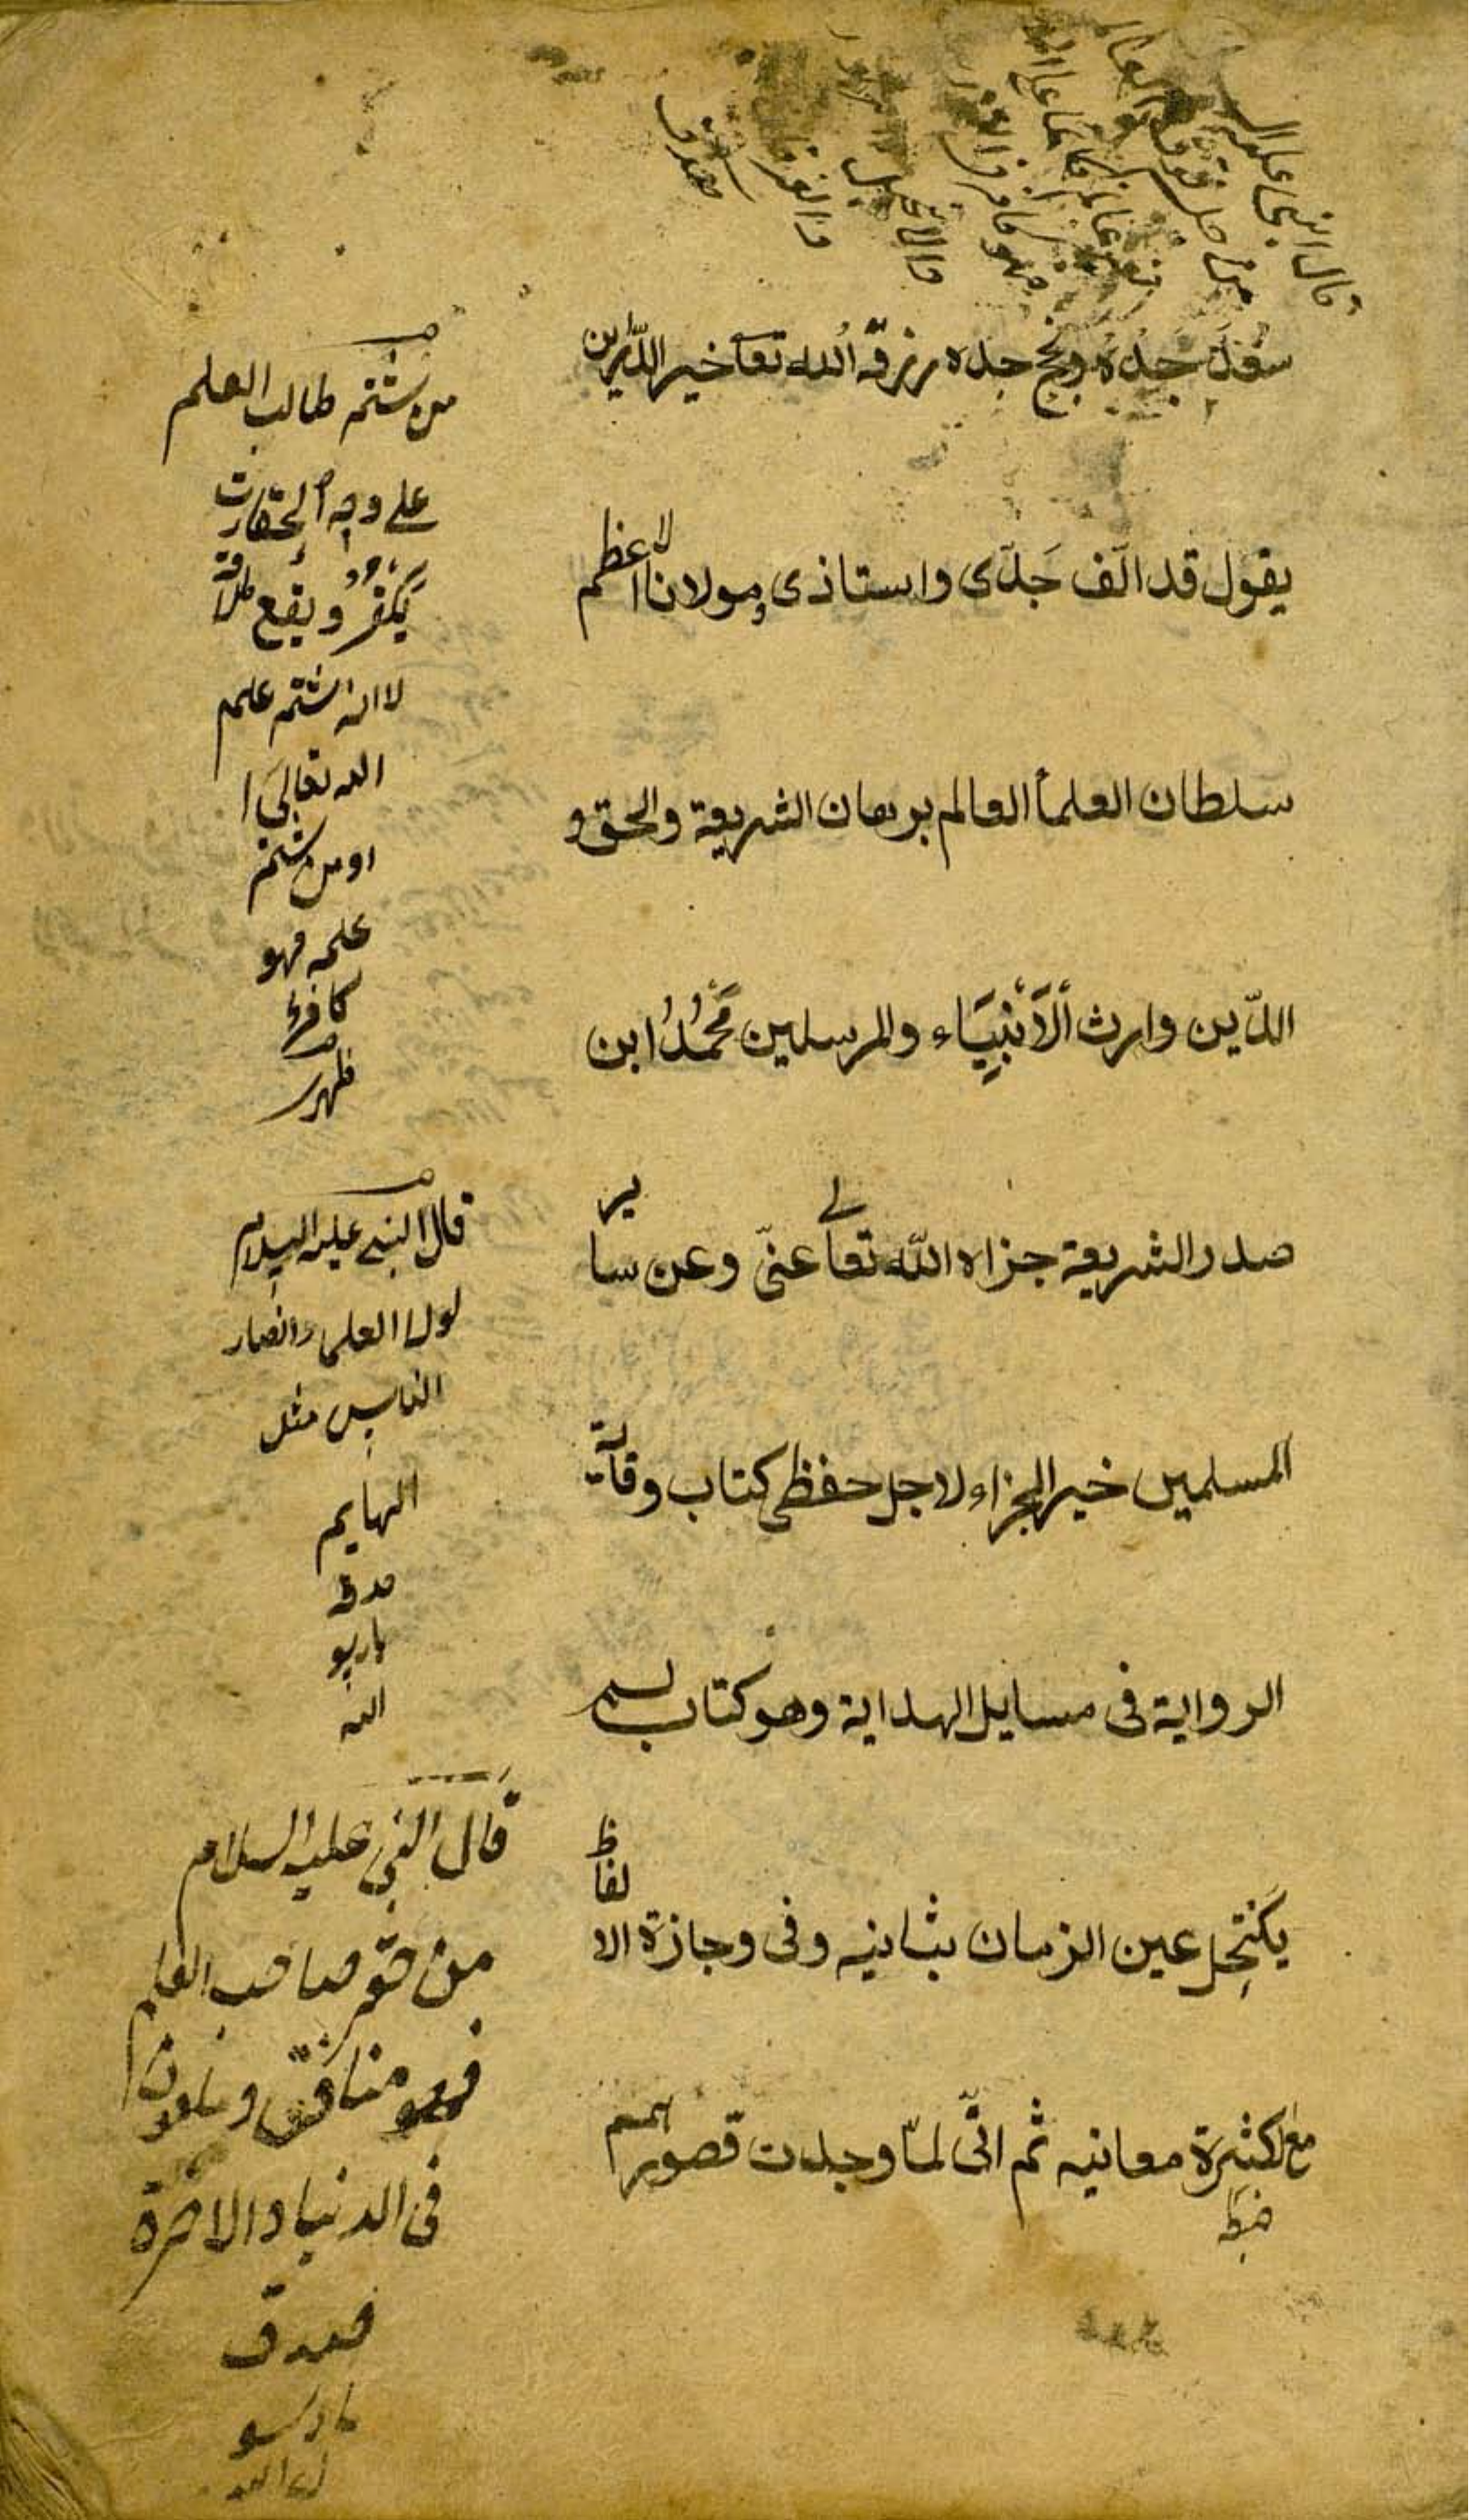 سعد جده ونجح جده رزقه الله تعا خير الدّارين
يقول قد الّف جَدّى واستاذى ومولانا الاعظم
سلطان العلماُ العالم برهان الشريعة والحق و
الدّين وارث الْاَنْبِيَاء والمرسلين مُحَمَّدُ ابن
صدر الشريعة جزاه الله تعالى عنّى وعن ساير
المسلمين خير الجزاء لاجل حفظى كتاب وقاية
الرواية فى مسايل الهداية وهو كتاب لم
يكتحِل عين الزمان بثانيه وفى وجازة الالفاظ
مع كثرة معانيه ثم انّى لمّا وجدت قصور همم
من شتم طالب العلم
على وجه الحقارت
يَكْفُرُ ويقع طلاقه
لانه شتم علم
الله تعالى
او من شتم
علمه فهو
كافر
قال النبى عليه السلام
لولا العلماء لصار
الناس مثل
البهايم
صدق
يا رسو
الله
قال النبى عليه السلام
من حقر صاحب العلم
فهو منافق وملعون
فى الدنيا والاخرة
صدق
يا رسو
ل الله